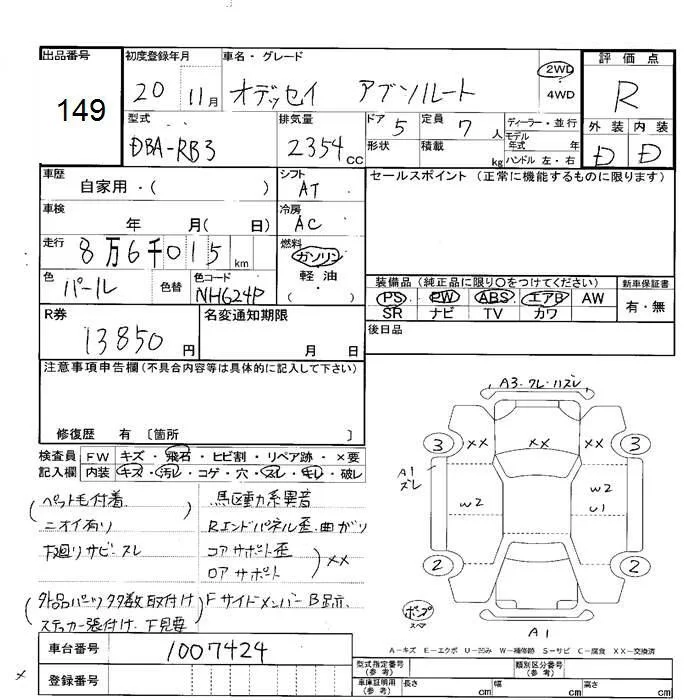 出品番号
149
初度登録年月
20 11月
車名・グレード
オデッセイ アブソルート
2WD
4WD
評価点
R
外装 内装
D D
型式
DBA-RB3
排気量
2354 cc
ドア 5
定員 7 人
形状
積載 kg
ディーラー・並行
モデル年式 年
ハンドル 左・右
車歴
自家用・( )
シフト
AT
セールスポイント (正常に機能するものに限ります)
車検
年 月( 日)
冷房
AC
走行
8万6千015 km
燃料
ガソリン
軽油
( )
色
パール
色替
色コード
NH624P
装備品 (純正品に限り○をつけてください)
PS PW ABS エアB AW
SR ナビ TV カワ
新車保証書
有・無
R券
13850 円
名変通知期限
月 日
後日品
注意事項申告欄 (不具合内容等は具体的に記入して下さい)
修復歴 有 〔箇所 〕
検査員記入欄
FW キズ・飛石・ヒビ割・リペア跡・×要
内装 キズ・汚レ・コゲ・穴・スレ・キレ・破レ
(ペット毛付着
ニオイ有り)
下廻りサビ・スレ
(外品パーツ多数取付け
ステッカー張付け・下見要)
駆動系異音
Rエンドパネル歪・曲がり
コアサポート歪
ロアサポート) ××
Fサイドメンバー B跡
A3・ワレ・ハズレ
3 ×× ×× ×× 3
A1
ズレ
W2
W2
U1
2 2
ポンプ
スペア
A1
A-キズ E-エクボ U-凹み W-補修跡 S-サビ C-腐食 XX-交換済
車台番号
1007424
登録番号
型式指定番号
(参考)
類別区分番号
(参考)
車庫証明用
(参考)
長さ cm
幅 cm
高さ cm